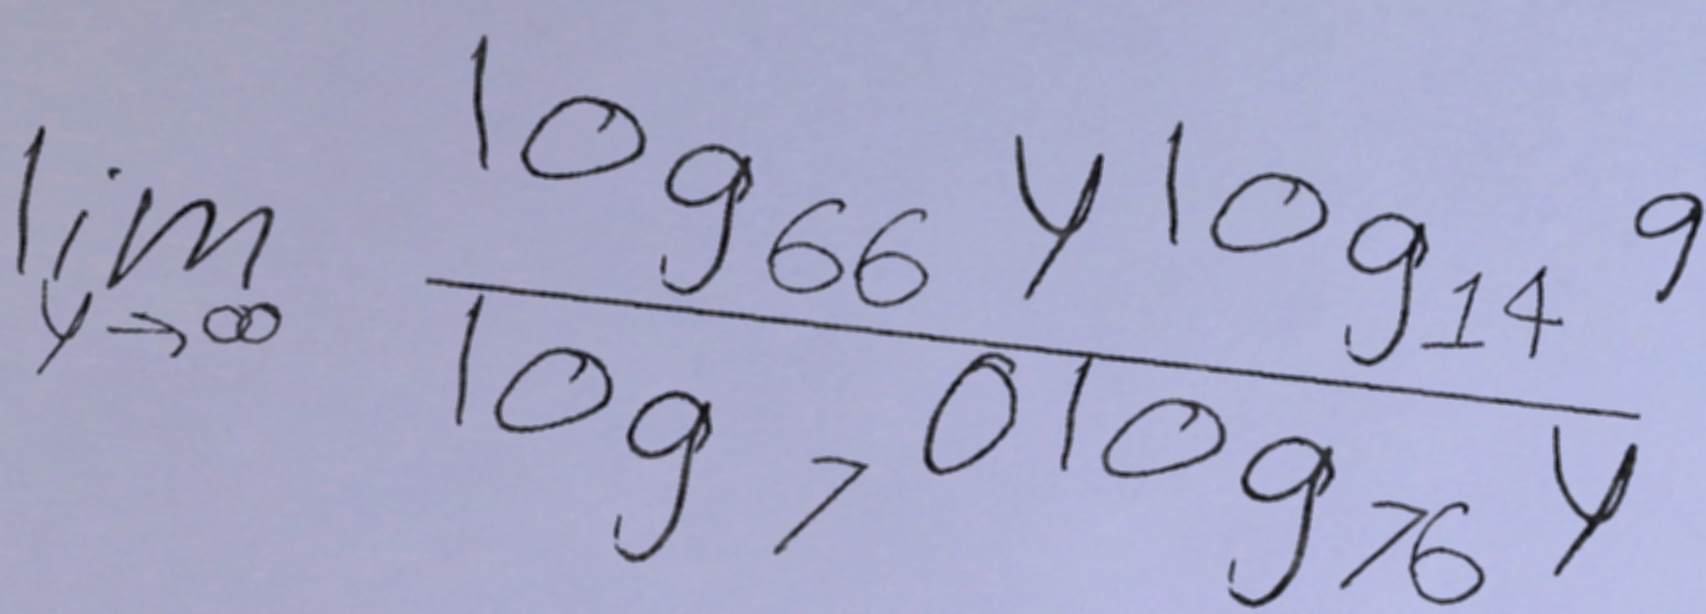 \lim_{y \to \infty} \frac{\log_{66} y \log_{14} 9}{\log_{7} 0 \log_{76} y}